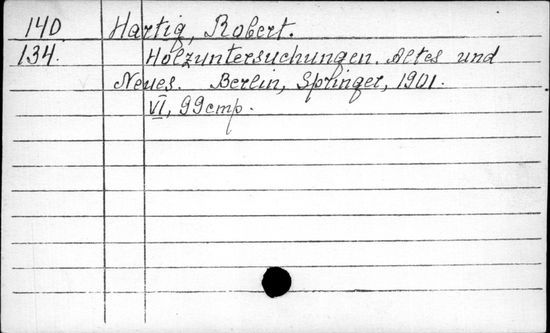 140 Hartig, Robert.
134. Holzuntersuchungen. Altes und
Neues. Berlin, Springer, 1901.
VI, 99 стр.